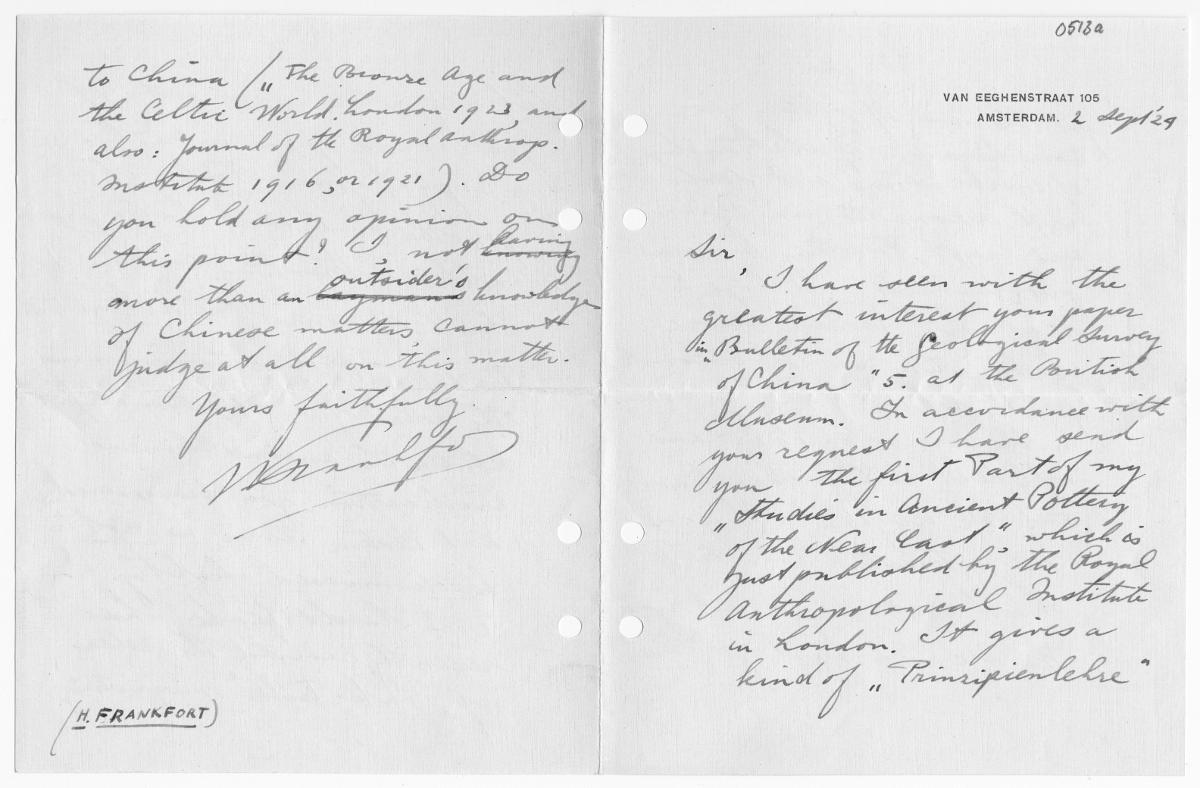 0513a
VAN EEGHENSTRAAT 105
AMSTERDAM. 2 Sept '24
Sir,
I have seen with the
greatest interest your paper
in „Bulletin of the Geological Survey
of China" 5. at the British
Museum. In accordance with
your request I have send
you the first Part of my
„Studies in Ancient Pottery
of the Near East" which is
just published by the Royal
Anthropological Institute
in London. It gives a
kind of „Prinzipienlehre"
to China („The Bronze Age and
the Celtic World. London 1923, and
also: Journal of the Royal anthrop.
Institute 1916, or 1921). Do
you hold any opinion on
this point? I, not knowing having
more than an layman's outsider's knowledge
of Chinese matters, cannot
judge at all on this matter.
Yours faithfully.
(H. FRANKFORT)